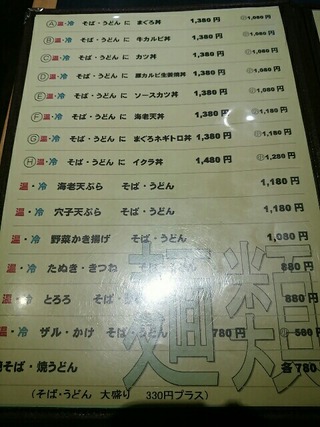 Ⓐ温・冷 そば・うどん に まぐろ丼 1,380 円 1,080 円
Ⓑ温・冷 そば・うどん に 牛カルビ丼 1,380 円 1,080 円
Ⓒ温・冷 そば・うどん に カツ丼 1,380 円 1,080 円
Ⓓ温・冷 そば・うどん に 豚カルビ生姜焼丼 1,380 円 1,080 円
Ⓔ温・冷 そば・うどん に ソースカツ丼 1,380 円 1,080 円
Ⓕ温・冷 そば・うどん に 海老天丼 1,380 円 1,180 円
Ⓖ温・冷 そば・うどん に まぐろネギトロ丼 1,380 円 1,180 円
Ⓗ温・冷 そば・うどん に イクラ丼 1,480 円 1,280 円
温・冷 海老天ぷら そば・うどん 1,180 円
温・冷 穴子天ぷら そば・うどん 1,180 円
温・冷 野菜かき揚げ そば・うどん 1,080 円
温・冷 たぬき・きつね そば・うどん 880 円
温・冷 とろろ そば・うどん 880 円
温・冷 ザル・かけ そば・うどん 780 円 580 円
焼そば・焼うどん 各780
麺類
(そば・うどん 大盛り 330円プラス)